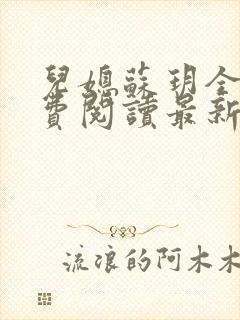 兒媳蘇玥全
費閱讀最新
流浪的阿木木